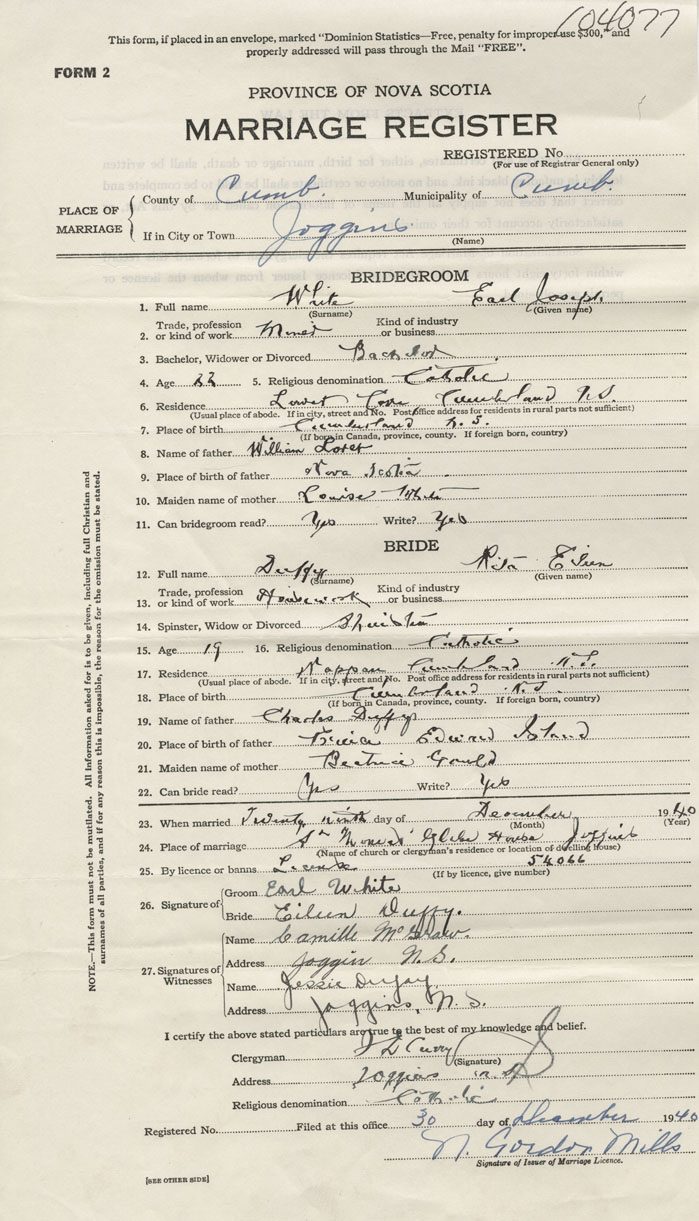 104077
This form, if placed in an envelope, marked "Dominion Statistics—Free, penalty for improper use $300," and
properly addressed will pass through the Mail "FREE".
FORM 2
PROVINCE OF NOVA SCOTIA
MARRIAGE REGISTER
REGISTERED No.
(For use of Registrar General only)
PLACE OF MARRIAGE
County of Cumb. Municipality of Cumb.
If in City or Town Joggins
(Name)
BRIDEGROOM
1. Full name White Earl Joseph
(Surname) (Given name)
2. Trade, profession or kind of work Miner Kind of industry or business
3. Bachelor, Widower or Divorced Bachelor
4. Age 5. Religious denomination Catholic
6. Residence Lower Cove Cumberland N.S.
(Usual place of abode. If in city, street and No. Post office address for residents in rural parts not sufficient)
7. Place of birth Cumberland N.S.
(If born in Canada, province, county. If foreign born, country)
8. Name of father William
9. Place of birth of father Nova Scotia
10. Maiden name of mother Louise White
11. Can bridegroom read? Yes Write? Yes
BRIDE
12. Full name Duffy Rita Eileen
(Surname) (Given name)
13. Trade, profession or kind of work Housework Kind of industry or business
14. Spinster, Widow or Divorced Spinster
15. Age 19 16. Religious denomination Catholic
17. Residence Nappan Cumberland N.S.
(Usual place of abode. If in city, street and No. Post office address for residents in rural parts not sufficient)
18. Place of birth Cumberland N.S.
(If born in Canada, province, county. If foreign born, country)
19. Name of father Charles Duffy
20. Place of birth of father Prince Edward Island
21. Maiden name of mother Beatrice Gould
22. Can bride read? Yes Write? Yes
23. When married Twenty ninth day of December 1940
(Month) (Year)
24. Place of marriage St Thomas' Glebe House Joggins
(Name of church or clergyman's residence or location of dwelling house)
25. By licence or banns License 54066
(If by licence, give number)
26. Signature of
Groom Earl White
Bride Eileen Duffy.
27. Signatures of Witnesses
Name Camille McGraw.
Address Joggin N.S.
Name Jessie
Address Joggins, N.S.
I certify the above stated particulars are true to the best of my knowledge and belief.
Clergyman Curry
(Signature)
Address Joggins N.S.
Religious denomination Catholic
Registered No. Filed at this office 30 day of December 1940
N. Gordon Mills
Signature of Issuer of Marriage Licence.
[SEE OTHER SIDE]
NOTE.—This form must not be mutilated. All information asked for is to be given, including full Christian and
surnames of all parties, and if for any reason this is impossible, the reason for the omission must be stated.